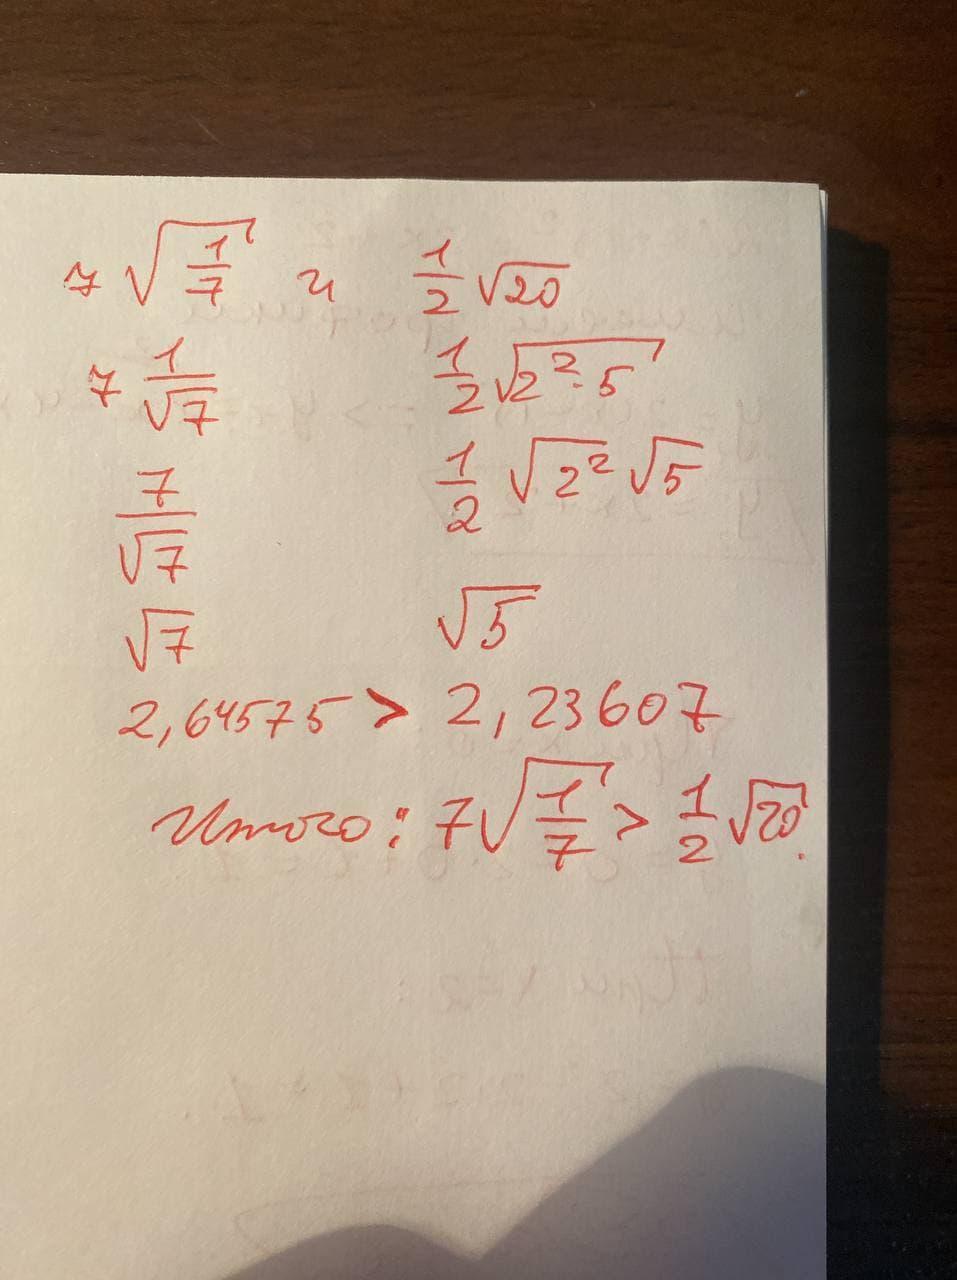 7 √(1/7) и 1/2 √20
7 1/√7 1/2 √(2² · 5)
7/√7 1/2 √2² √5
√7 √5
2,64575 > 2,23607
Итого: 7√(1/7) > 1/2 √20.